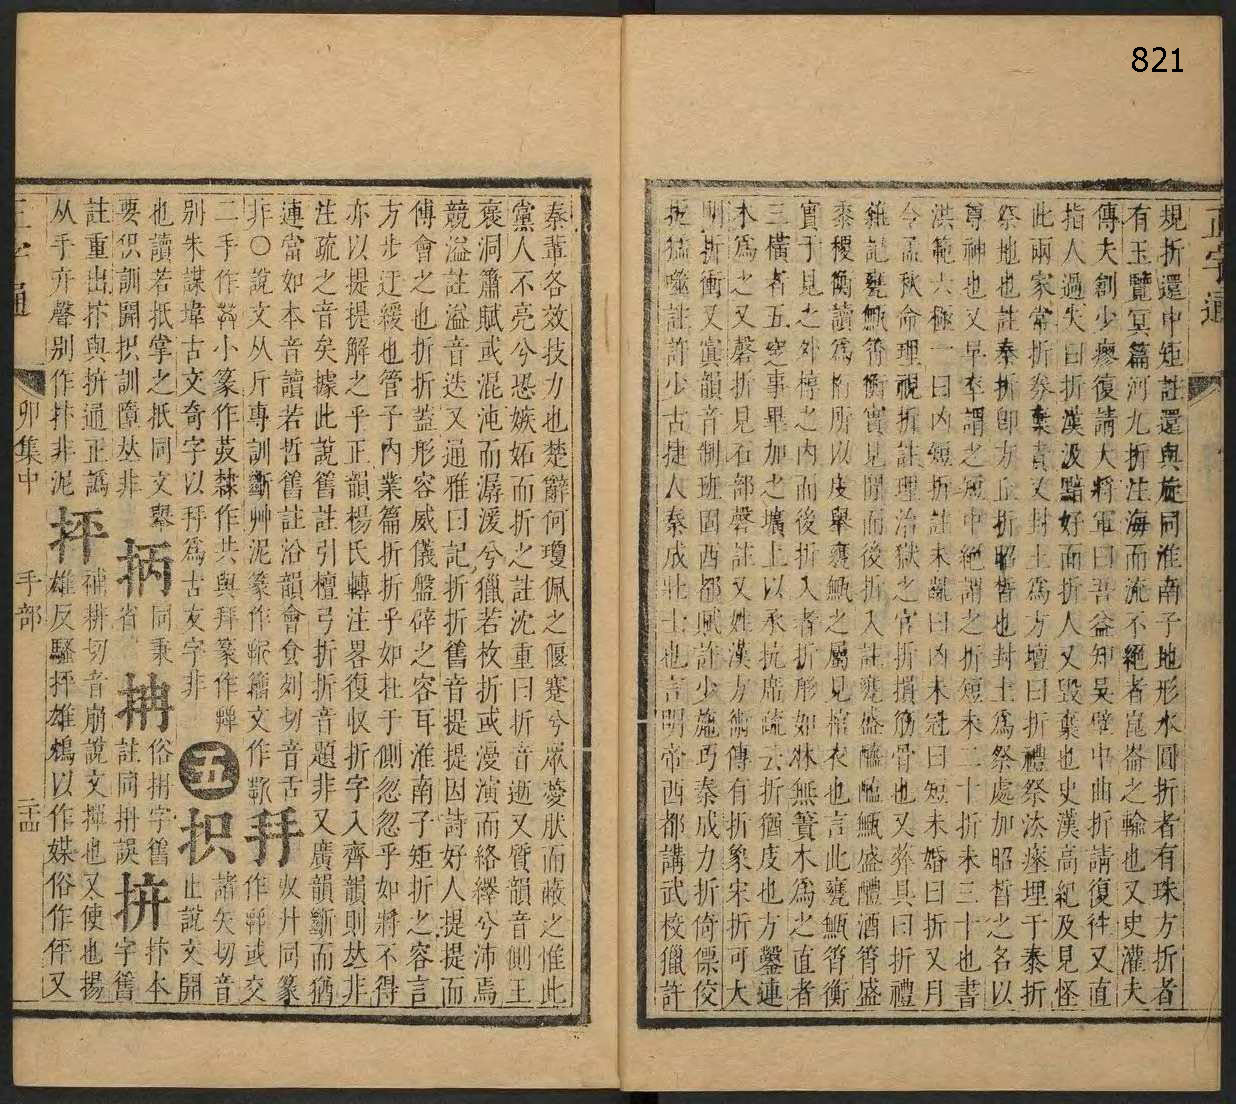 821
正字通
規折還中矩註還與旋同淮南子地形水圓折者有珠方折者
有玉覽冥篇河九折注海而流不絕者崑崙之輸也又史灌夫
傳夫創少瘳復請大將軍曰吾益知吳壁中曲折請復往又直
指人過失曰折漢汲黯好面折人又毀棄也史漢高紀及見怪
此兩家常折券棄責又封土為方壇曰折禮祭法瘞埋于泰折
祭地也註泰折卽方丘折昭晳也封土為祭處加昭晳之名以
尊神也又早卒謂之短中絕謂之折短未二十折未三十也書
洪範六極一曰凶短折註未齓曰凶未冠曰短未婚曰折又月
令孟秋命理視折註理治獄之官折損筋骨也又葬具曰折禮
雜記甕甒筲衡實見間而後折入註甕盛醯醢甒盛醴酒筲盛
黍稷衡讀為桁所以庋舉甕甒之屬見棺衣也言此甕甒筲衡
實于見之外椁之內而後折入者折形如牀無簀木為之直者
三橫者五窆事畢加之壙上以承抗席疏云折猶庋也方鑿連
木為之又磬折見石部磬註又姓漢方術傳有折象宋折可大
則折衝又窴韻音制班固西都賦許少施巧秦成力折倚僄佼
扼猛噬註許少古捷人秦成壯士也言明帝西都講武校獵許
秦輩各效技力也楚辭何瓊佩之偃蹇兮眾薆肰而蔽之惟此
黨人不亮兮恐嫉妬而折之註沈重曰折音逝又質韻音側王
褒洞簫賦或混沌而潺湲兮獵若枚折或漫演而絡繹兮沛焉
競溢註溢音迭又通雅曰記折折舊音提提因詩好人提提而
傅會之也折折蓋形容威儀盤辟之容耳淮南子矩折之容言
方步迂緩也管子內業篇折折乎如在于側忽忽乎如將不得
亦以提提解之乎正韻楊氏轉注畧復收折字入齊韻則𠀤非
注疏之之音矣據此說舊註引檀弓折折音題非又廣韻斷而猶
連當如本音讀若哲舊註沿韻會食列切音舌
非○說文从斤專訓斷艸泥篆作籀文作 拜 收廾同篆作或交
二手作小篆作隸作共與拜篆作
別朱謀㙔古文奇字以拜為古友字非 五 抧 諸矢切音止說文開
也讀若抵掌之抵同文舉
要抧訓開抧訓隋𠀤非 抦 同秉省 抩 俗抩字舊註同抩誤 拚 拚本字舊
註重出拚與拚通正譌 補耕切音崩說文撣也又使也揚
从手弁聲別作非泥 抨 雄反騷抨雄鴆以作媒俗作伻又
正字通
卯集中
手部
二十四